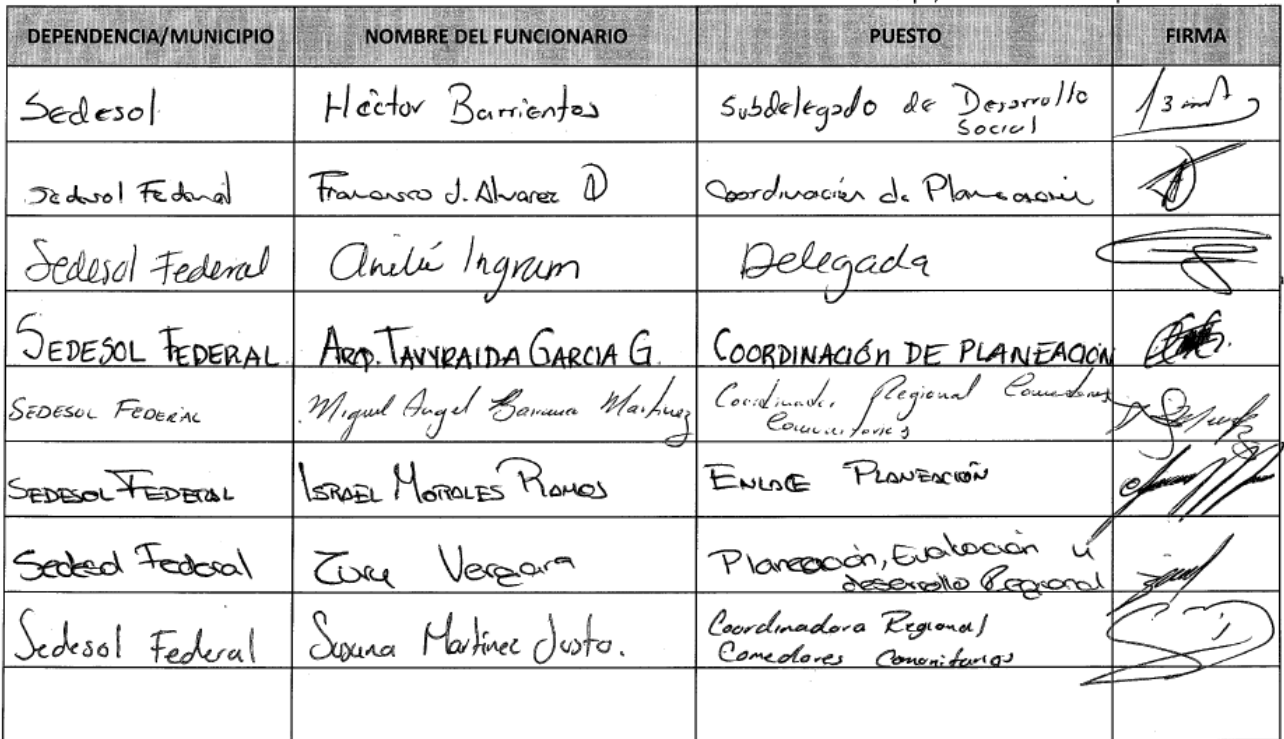 DEPENDENCIA/MUNICIPIO NOMBRE DEL FUNCIONARIO PUESTO FIRMA
Sedesol Héctor Barrientos Subdelegado de Desarrollo
Social
Sedesol Federal Francisco J. Alvarez D Coordinación de Planeación
Sedesol Federal Anilú Ingram Delegada
SEDESOL FEDERAL ARQ. TAVYRAIDA GARCIA G. COORDINACIÓN DE PLANEACIÓN
SEDESOL FEDERAL Miguel Angel Martinez Coordinador Regional Comedores
Comunitarios
SEDESOL FEDERAL ISRAEL MORALES RAMOS ENLACE PLANEACIÓN
Sedesol Federal Zury Vergara Planeación, Evaluación y
desarrollo Regional
Sedesol Federal Susana Martinez Justo. Coordinadora Regional
Comedores Comunitarios